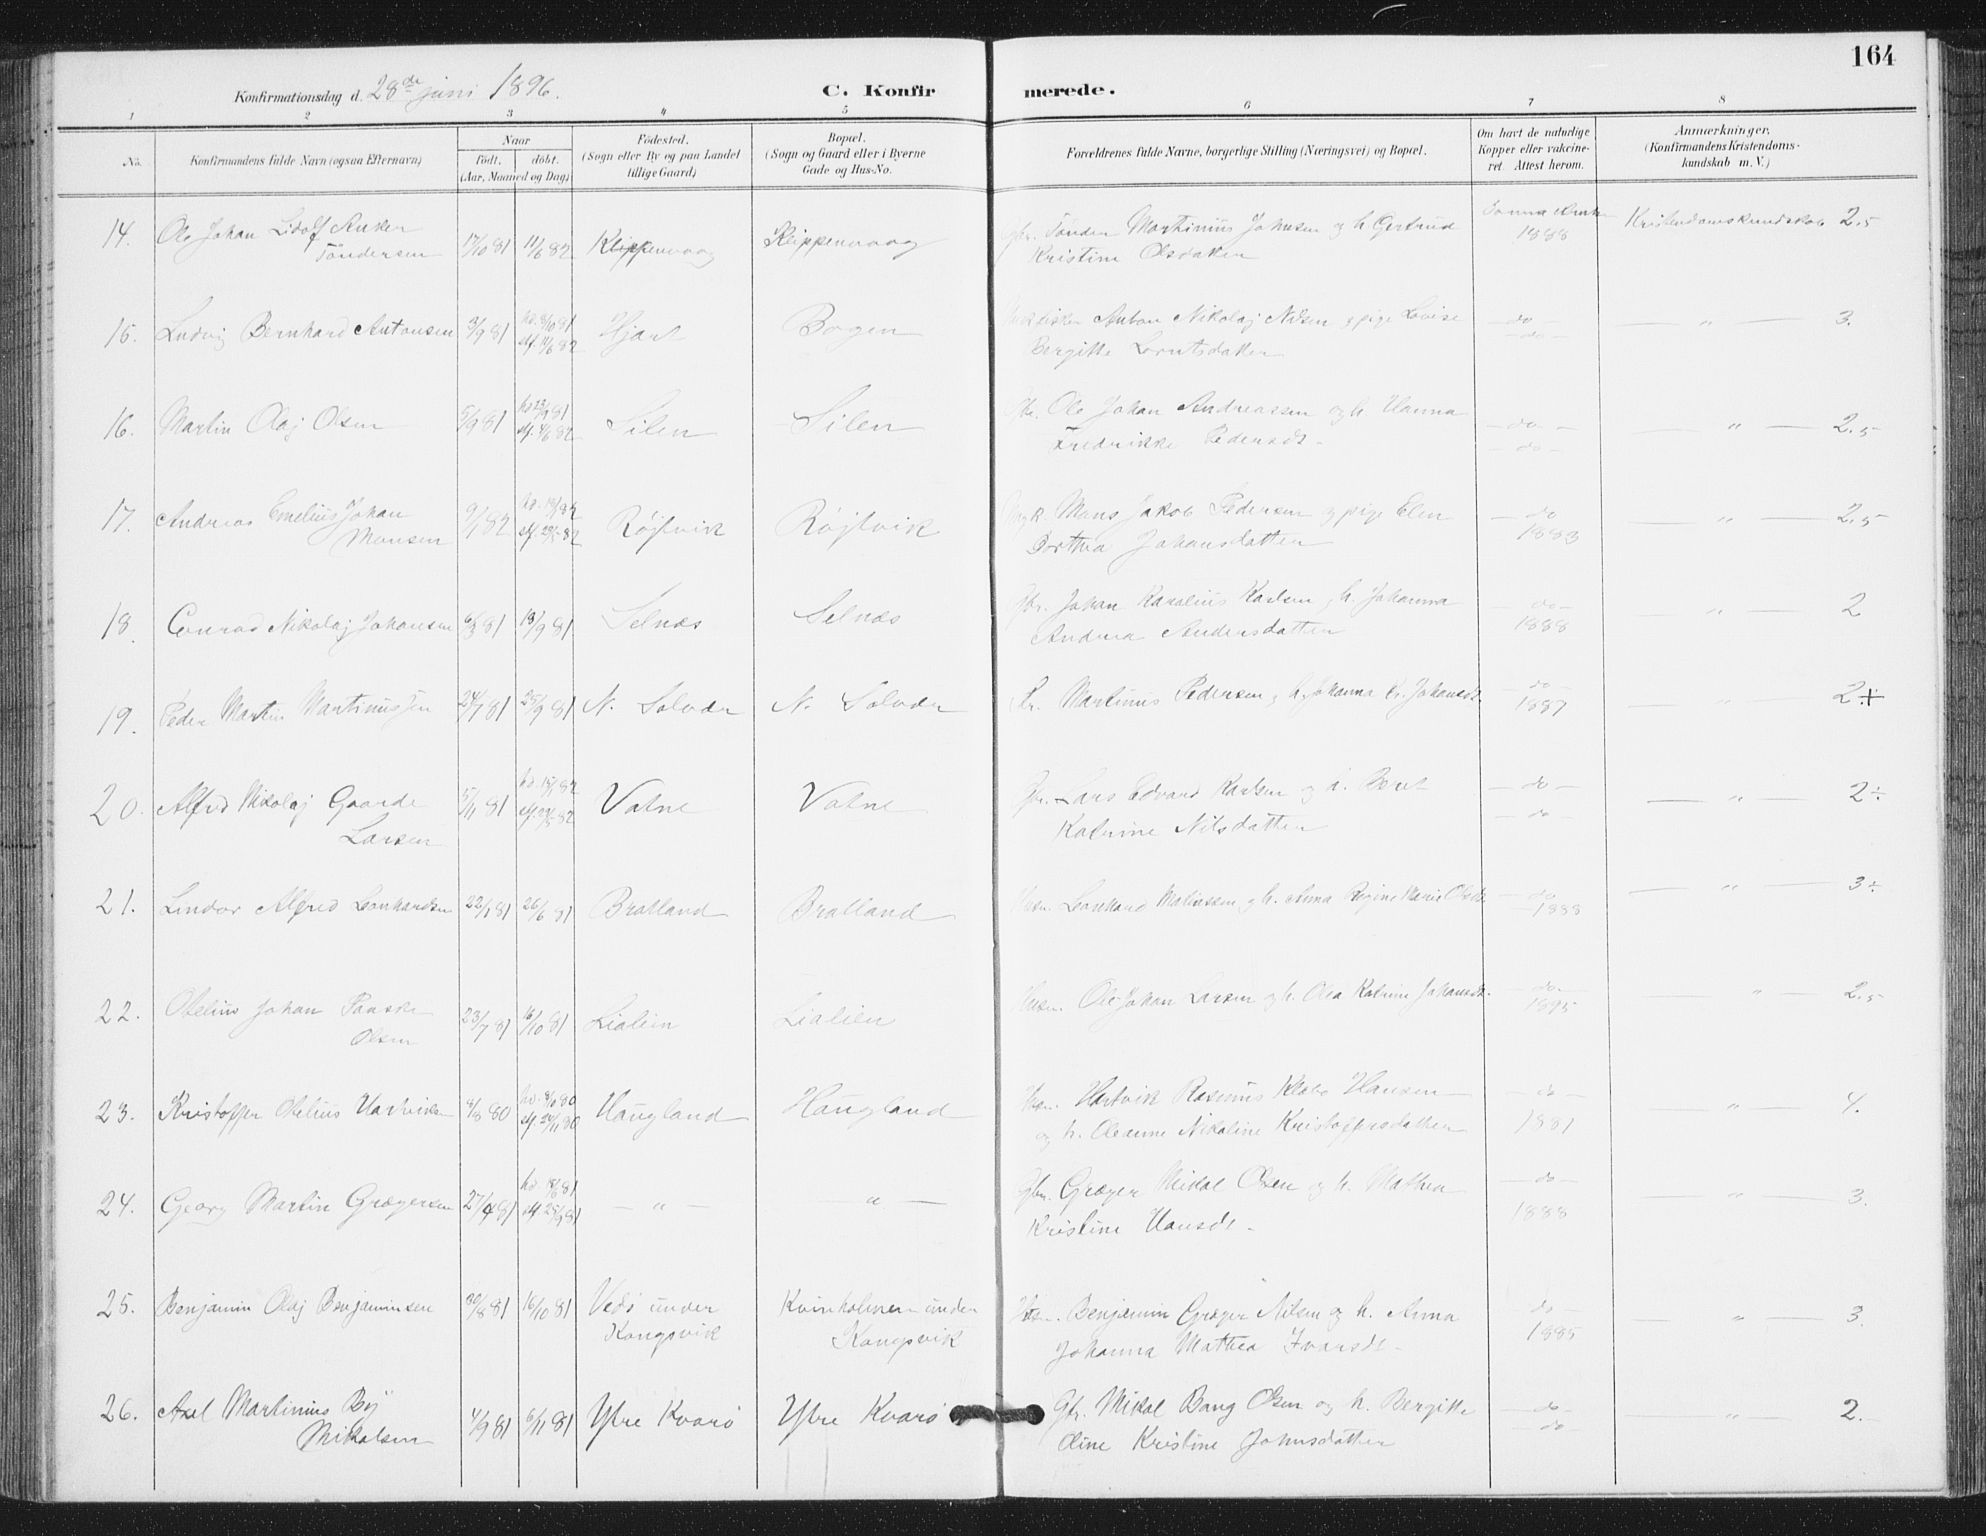 164
Konfirmationsdag d. 28de juni 1896.
C. Konfirmerede.
1 2 3 4 5 6 7 8
No. Konfirmandens fulde Navn (ogsaa Efternavn)
Naar
født. døbt.
(Aar, Maaned og Dag)
Födested.
(Sogn eller By og paa Landet
tillige Gaard)
Bopæl.
(Sogn og Gaard eller i Byerne
Gade og Hus-No.
Forældrenes fulde Navne, borgerlige Stilling (Næringsvei) og Bopæl.
Om havt de naturlige
Kopper eller vakcine-
ret. Attest herom.
Anmærkninger,
(Konfirmandens Kristendoms-
kundskab m. V.)
14. Ole Johan Lidolf Anker
Töndersen 17/10 81 11/6 82 Klippenvaag Klippenvaag
Gbr. Tönder Martinius Johnsen og h. Gertrud
Kristine Olsdatter
1888 Kristendomskundskab 2.5
15. Ludvig Bernhard Antonsen 3/9 81 hd. 8/10 81
stf. 11/6 82 Hjart Bogen
Anton Nikolaj Nilsen og pige Lovise
Bergitte Lorntsdatter
do
do 〃 3.
16. Martin Olaj Olsen 5/9 81 stf. 4/6 82 Silen Silen
Gbr. Ole Johan Andreassen og h. Hanna
Fredrikke Pedersdt.
do
do 〃 2.5
17. Andreas Emelius Johan
Monsen 82 Röjtvik Röjtvik
Mons Jakob Pedersen og pige Elen
Dorthea Johansdatter
do
1883 〃 2.5
18. Conrad Nikolaj Johansen 6/3 81 18/9 81 Selnæs Selnæs
Gbr. Johan Karolius Karlsen og h. Johanna
Andrea Andersdatter
do
1888 〃 2
19. Peder Martin Martinussen 24/7 81 25/9 81 N. Solvær N. Solvær
Martinus Pedersen og h. Johanna Kr. Johansdt.
do
1887 〃 2÷
20. Alfred Nikolaj Gaarde
Larsen 5/11 81 hd. 15/1 82 Vatne Vatne
Gbr. Lars Edvard Karlsen og h. Beret
Katrine Nilsdatter
do
do 〃 2÷
21. Lindor Alfred Leonhardsen 22/1 81 26/6 81 Bratland Bratland
Husm. Leonhard Mathissen og h. Anna Regine Marie Olsdt.
do
1888 〃 3÷
22. Otelius Johan
Olsen 23/7 81 16/10 81 Lialien Lialien
Husm. Ole Johan Larsen og h. Olea Katrine Johansdt.
do
1895 〃 2.5
23. Kristoffer Otelius Hartviksen 8/8 80 stf. 24/11 80 Haugland Haugland
Hartvik Rasmus Klæbo Hansen
og h. Oleanne Nikoline Kristoffersdatter
do
1881 〃 4.
24. Georg Martin Grægersen 27/4 81 stf. 25/9 81 〃 〃
Gbr. Græger Mikal Olsen og h. Mathea
Kristine Hansdt.
do
1888 〃 3.
25. Benjamin Olaj Benjaminsen 30/8 81 16/10 81 Vedö under
Kongsvik Kvinholmen under
Kongsvik
Husm. Benjamin Græger Nilsen og h. Anna
Johanna Mathea Ivarsdt.
do
1885 〃 3.
26. Axel Martinius Böj
Mikalsen 4/9 81 6/11 81 Ytre Kvarö Ytre Kvarö
Gbr. Mikal Bang Olsen og h. Bergitte
Oline Kristine Johnsdatter
do
do 〃 2.